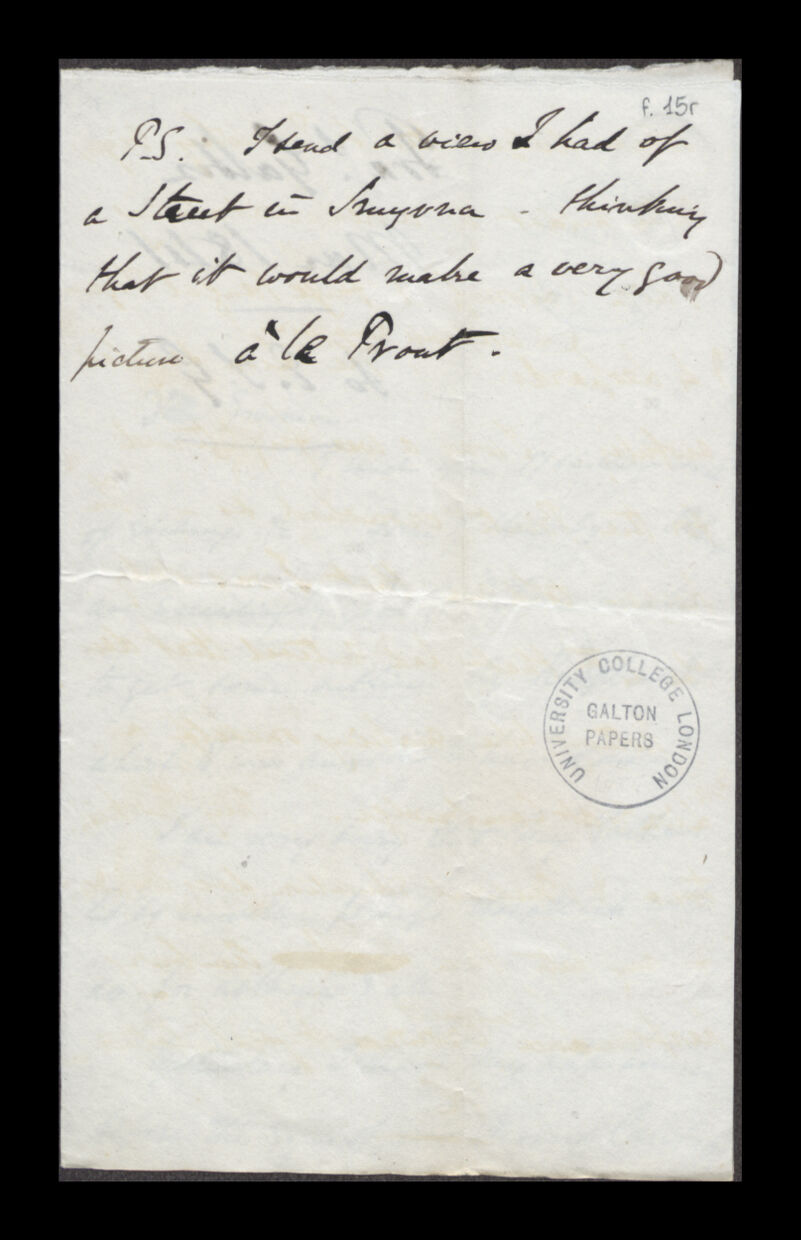 f. 15r
P.S. I send a view I had of
a Street in Smyrna - thinking
that it would make a very good
picture à la Prout.
UNIVERSITY COLLEGE LONDON
GALTON
PAPERS